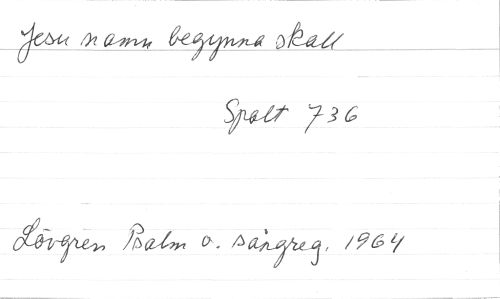 Jesu namn begynna skall
Spalt 736
Lövgren Psalm o. sångreg. 1964